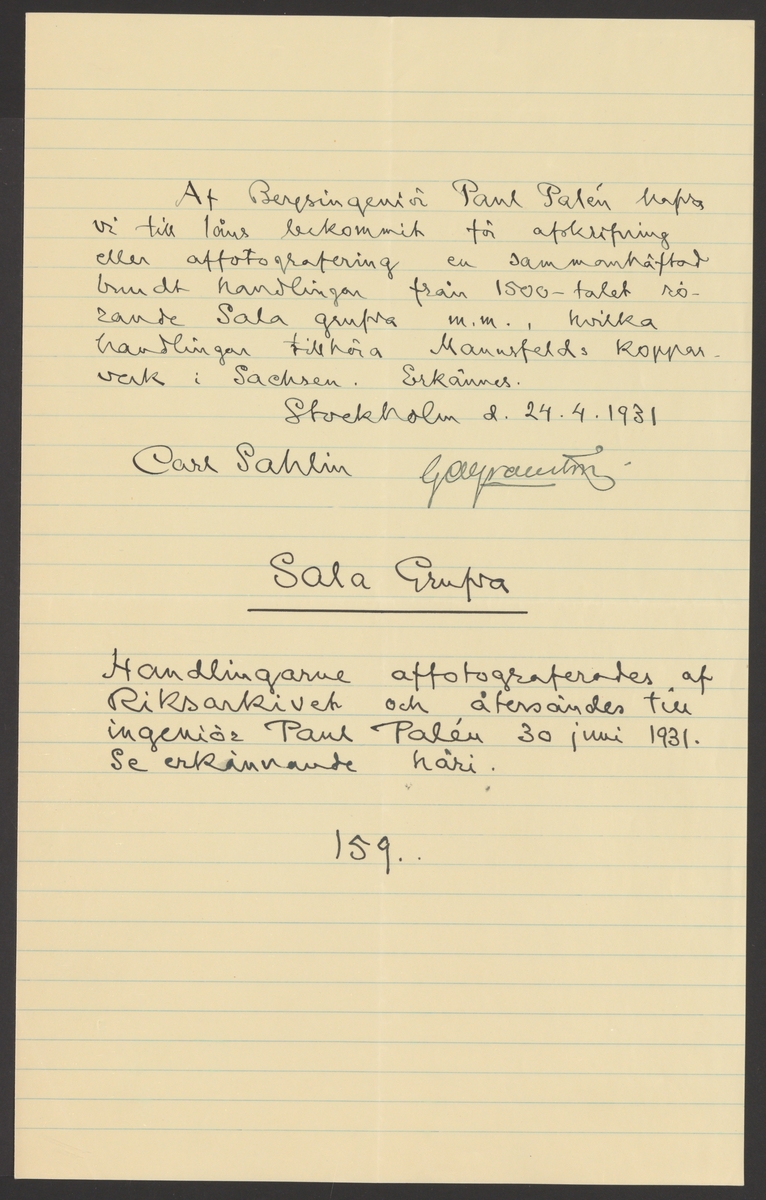 Af Bergsingeniör Paul Palén hafva
vi till låns bekommit för afskrifning
eller affotografering en sammanhäftad
bundt handlingar från 1500-talet rö-
rande Sala grufva m.m., hvilka
handlingar tillhöra Mannsfelds koppar-
verk i Sachsen. Erkännes.
Stockholm d. 24.4.1931
Carl Sahlin
Sala Grufva
Handlingarne affotograferades af
Riksarkivet och återsändes till
ingeniör Paul Palén 30 juni 1931.
Se erkännande häri.
159..